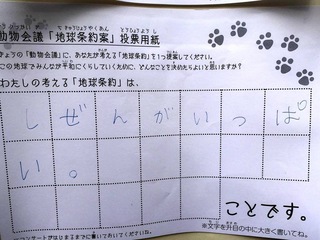 動物会議「地球条約案」投票用紙
きょうの「動物会議」に、あなたが考える「地球条約」を1つ提案してください。
この地球でみんなが平和にくらしていくために、どんなことを決めたらよいと思いますか?
わたしの考える「地球条約」は、
しぜんがいっぱ
い。
ことです。
※文字を升目の中に大きく書いてね。